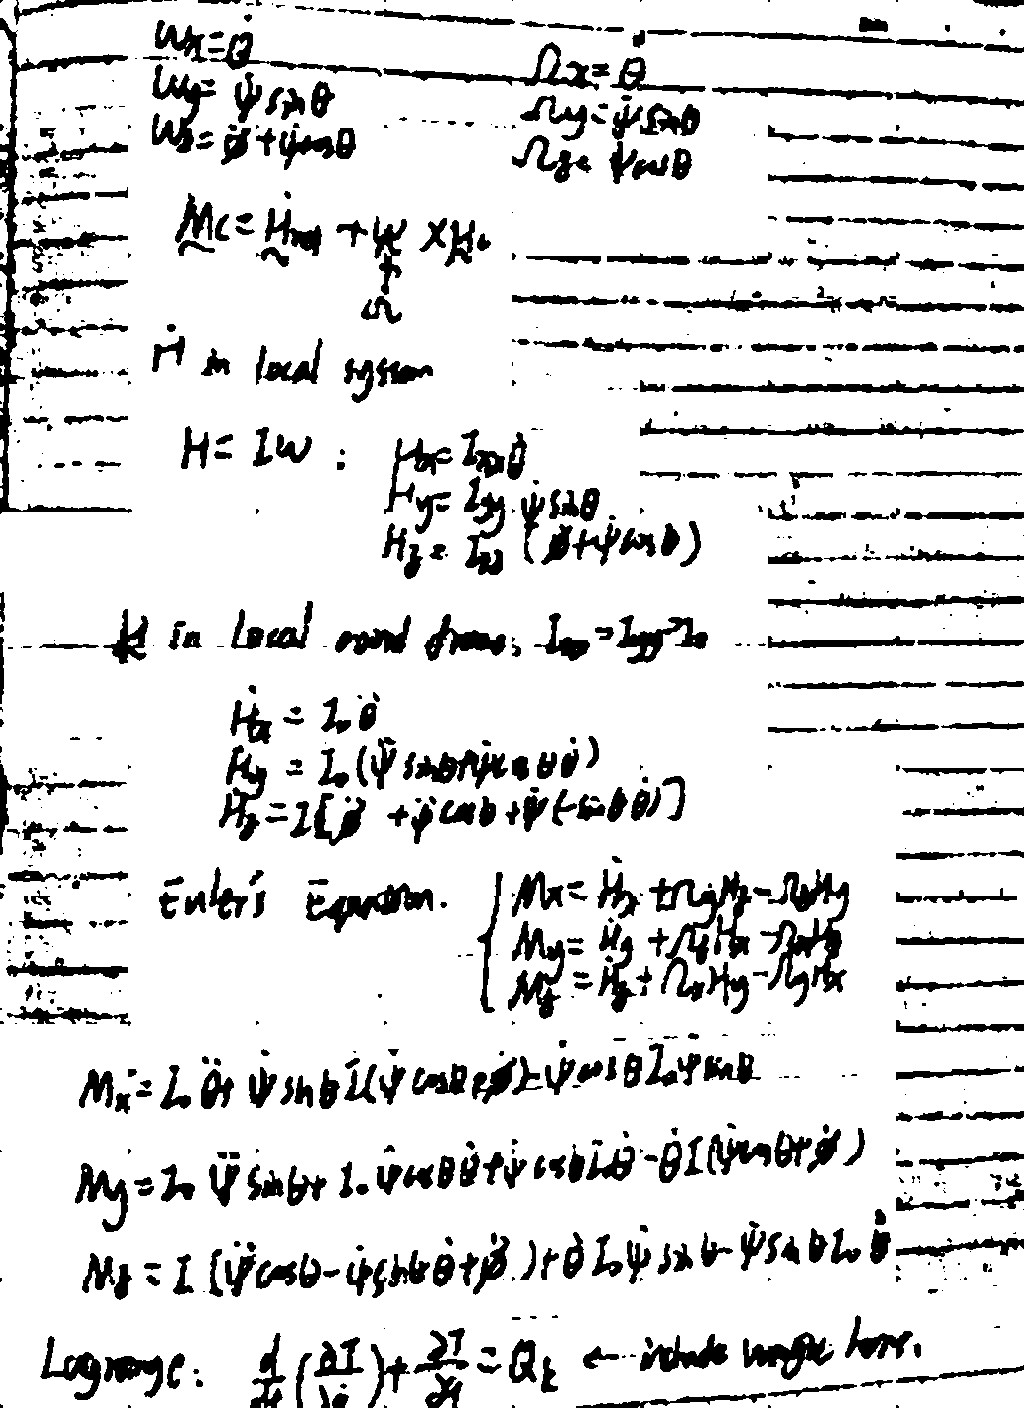 ωx = θ̇
ωy = ψ̇ sin θ
ωz = φ̇ + ψ̇ cos θ
Ωx = θ̇
Ωy = ψ̇ sin θ
Ωz = ψ̇ cos θ
Mc = Ḣ + ω × Hc
Ω
Ḣ in local system
H = Iω : Hx = Ixx θ̇
Hy = Iyy ψ̇ sin θ
Hz = Izz (φ̇ + ψ̇ cos θ)
in Local frame, Ixx = Iyy = I₀
Ḣx = I₀ θ̈
Ḣy = I₀ (ψ̈ sin θ + ψ̇ cos θ θ̇)
Ḣz = I [φ̈ + ψ̈ cos θ + ψ̇ (-sin θ θ̇)]
Euler's Equation. Mx = Ḣx + Ωy Hz - Ωz Hy
My = Ḣy + Ωz Hx - Ωx Hz
Mz = Ḣz + Ωx Hy - Ωy Hx
Mx = I₀ θ̈ + ψ̇ sin θ I (ψ̇ cos θ + φ̇) - ψ̇ cos θ I₀ ψ̇ sin θ
My = I₀ ψ̈ sin θ + I₀ ψ̇ cos θ θ̇ + ψ̇ cos θ I₀ θ̇ - θ̇ I (ψ̇ cos θ + φ̇)
Mz = I [ψ̈ cos θ - ψ̇ sin θ θ̇ + φ̈ ) + θ̇ I₀ ψ̇ sin θ - ψ̇ sin θ I₀ θ̇
Lagrange: d/dt (∂T/∂q̇) + ∂T/∂q = Qk ← include